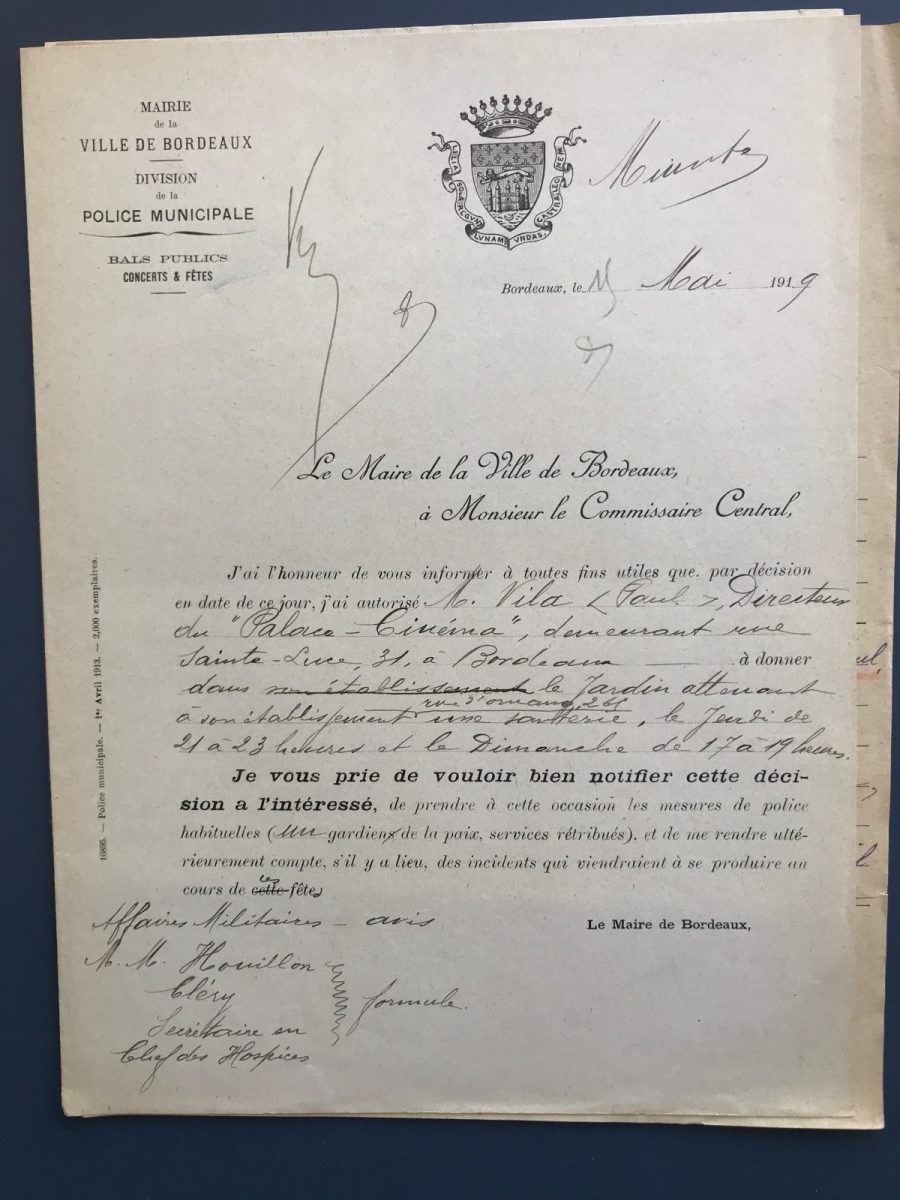 MAIRIE
de la
VILLE DE BORDEAUX
DIVISION
de la
POLICE MUNICIPALE
BALS PUBLICS
CONCERTS & FÊTES
LILIA SOLA REGUNT LVNAM VNDAS CASTRA LEONEM
Minute
Bordeaux, le 15 Mai 1919
Le Maire de la Ville de Bordeaux,
à Monsieur le Commissaire Central,
J'ai l'honneur de vous informer à toutes fins utiles que, par décision
en date de ce jour, j'ai autorisé M. Vila (Paul), Directeur
du "Palace-Cinéma", demeurant rue
Sainte-Luce, 31, à Bordeaux — à donner
dans son établissement le Jardin attenant
rue d'ornano, 261
à son établissement une sauterie, le Jeudi de
21 à 23 heures et le Dimanche de 17 à 19 heures.
Je vous prie de vouloir bien notifier cette déci-
sion a l'intéressé, de prendre à cette occasion les mesures de police
habituelles (un gardiens de la paix, services rétribués), et de me rendre ulté-
rieurement compte, s'il y a lieu, des incidents qui viendraient à se produire au
ces
cours de cette fêtes
Le Maire de Bordeaux,
Affaires Militaires — avis
M. M. Houillon
Cléry
Secrétaire en
Chef des Hospices
formule.
16895. — Police municipale. — 1er Avril 1913. — 2,000 exemplaires.